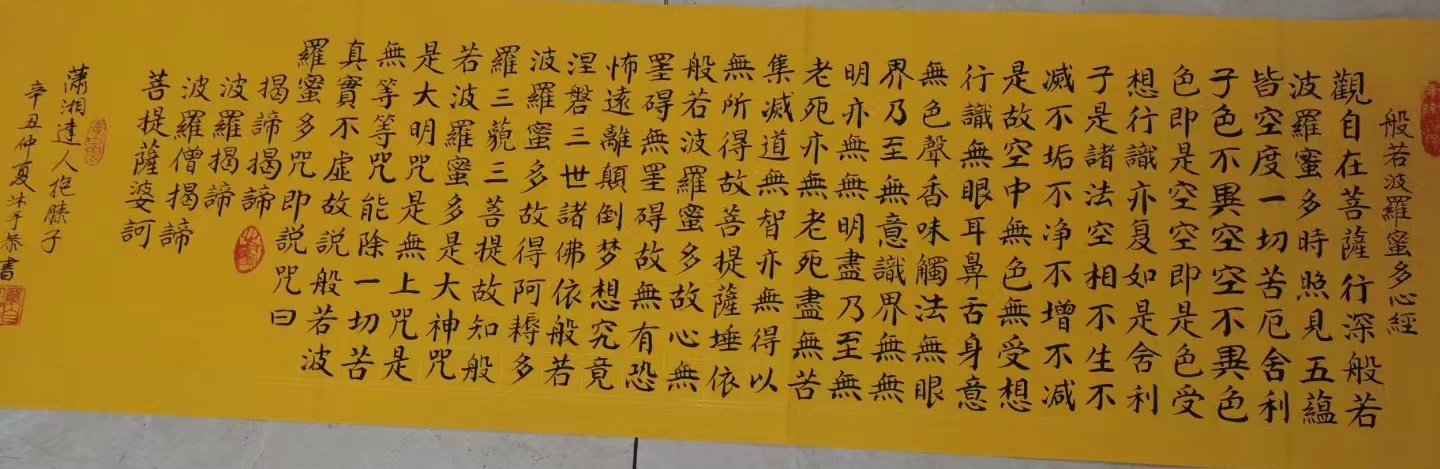 般若波羅蜜多心經
觀自在菩薩行深般若
波羅蜜多時照見五蘊
皆空度一切苦厄舍利
子色不異空空不異色
色即是空空即是色受
想行識亦复如是舍利
子是諸法空相不生不
滅不垢不净不增不减
是故空中無色無受想
行識無眼耳鼻舌身意
無色聲香味觸法無眼
界乃至無意識界無無
明亦無無明盡乃至無
老死亦無老死盡無苦
集滅道無智亦無得以
無所得故菩提薩埵依
般若波羅蜜多故心無
罣碍無罣碍故無有恐
怖遠離顛倒梦想究竟
涅磐三世諸佛依般若
波羅蜜多故得阿耨多
羅三藐三菩提故知般
若波羅蜜多是大神咒
是大明咒是無上咒是
無等等咒能除一切苦
真實不虛故説般若波
羅蜜多咒即説咒曰
揭諦揭諦
波羅揭諦
波羅僧揭諦
菩提薩婆訶
瀟湘達人抱膝子
辛丑仲夏沐手恭書